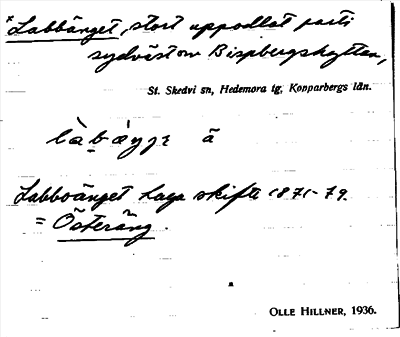 *Labbänget, stort uppodlat parti
sydväst om Bispbergshyttan,
St. Skedvi sn, Hedemora tg, Kopparbergs län.
ä
Labboänget Laga skifte 1871-79.
= Österäng.
OLLE HILLNER, 1936.